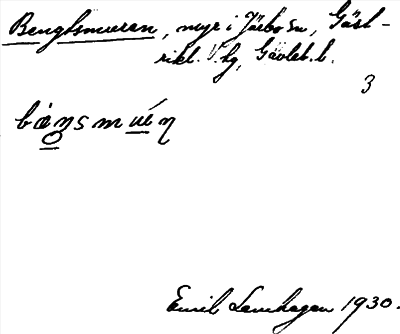 Bengtsmuren, myr i Järbo sn, Gäst-
rikl. V. hg, Gävleb. l.
3
Emil Lenhagen 1930.